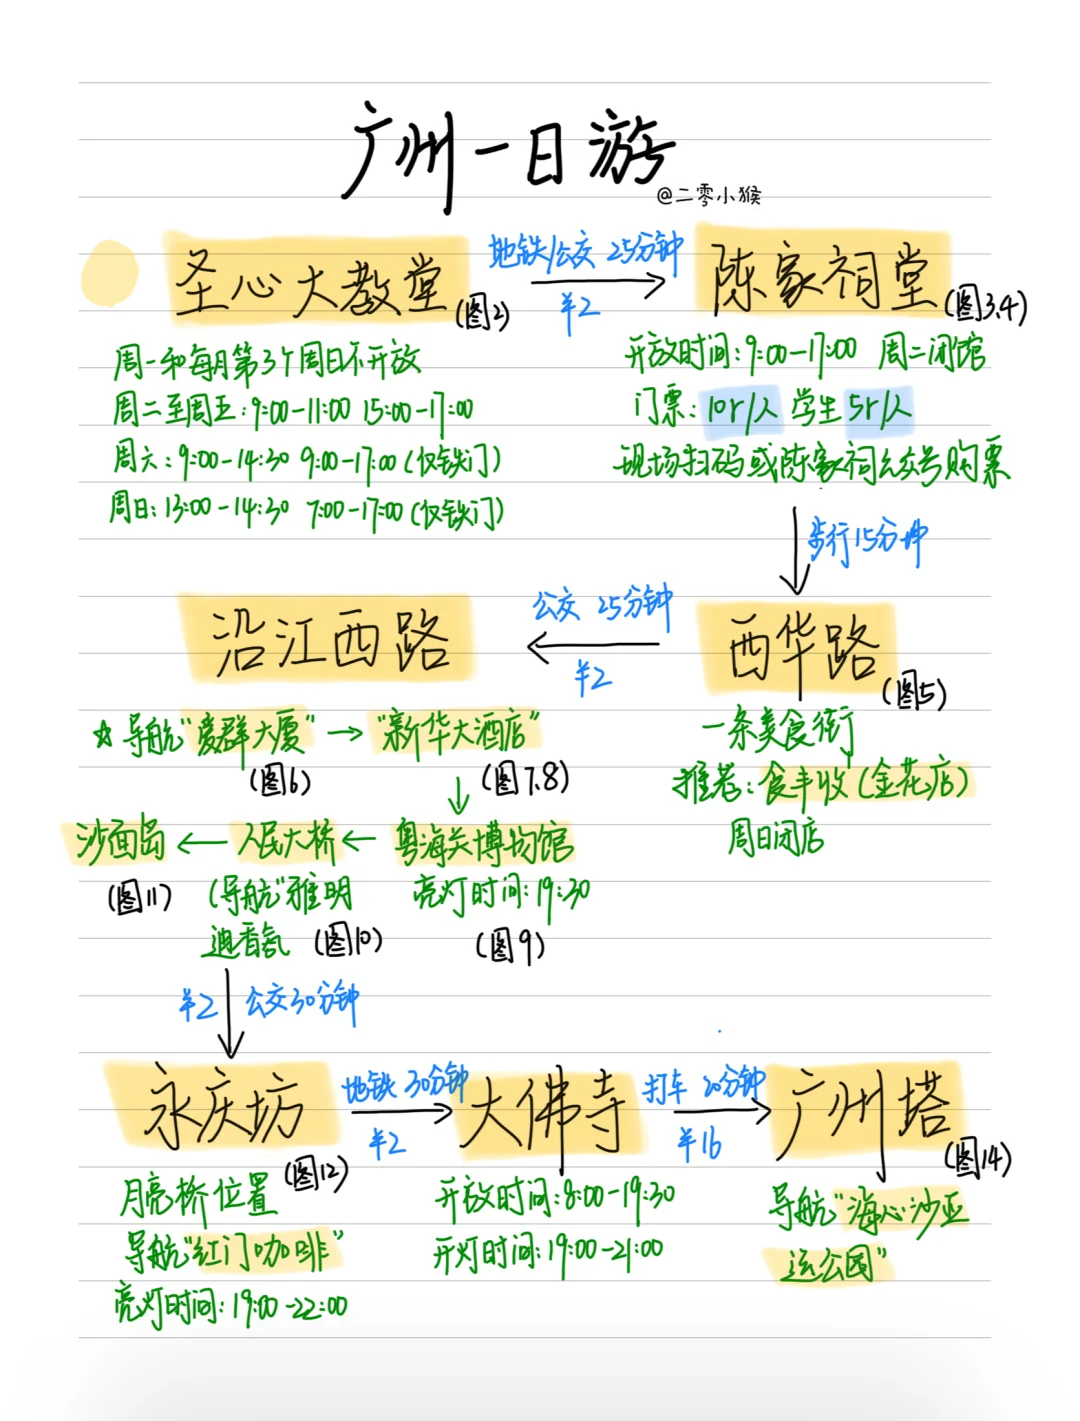 广州一日游
@二零小猴
圣心大教堂(图2)
地铁/公交 25分钟
¥2
陈家祠堂(图3.4)
周一和每月第3个周日不开放
周二至周五:9:00-11:00 15:00-17:00
周六:9:00-14:30 9:00-17:00(仅铁门)
周日:13:00-14:30 7:00-17:00(仅铁门)
开放时间:9:00-17:00 周二闭馆
门票:10r/人 学生5r/人
现场扫码或陈家祠公众号购票
步行15分钟
西华路(图5)
一条美食街
推荐:食丰收(金花店)
周日闭店
公交 25分钟
¥2
沿江西路
☆导航"爱群大厦"→"新华大酒店"
(图6) (图7.8)
沙面岛←人民大桥←粤海关博物馆
(图11) (导航"雅明 亮灯时间:19:30
迪香氛 (图10) (图9)
¥2 公交30分钟
永庆坊(图12)
月亮桥位置
导航"红门咖啡"
亮灯时间:19:00-22:00
地铁 30分钟
¥2
大佛寺
开放时间:8:00-19:30
开灯时间:19:00-21:00
打车 20分钟
¥16
广州塔(图14)
导航"海心沙亚
运公园"